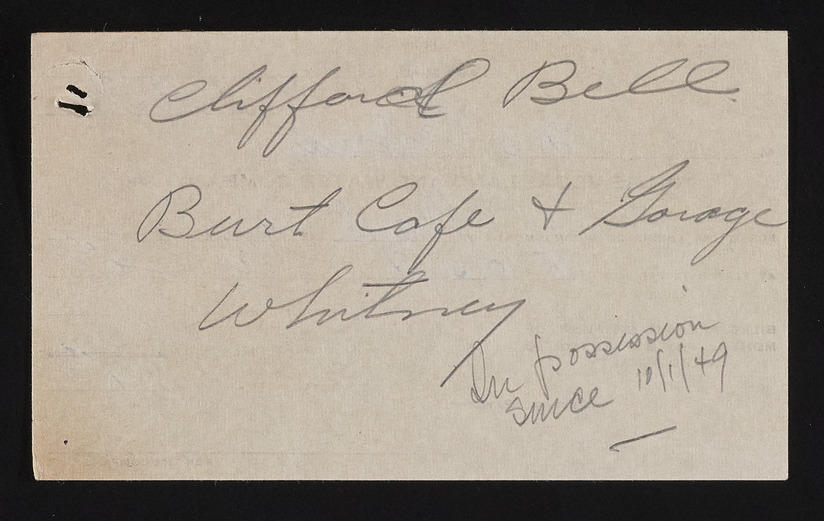 Clifford Bell
Burt Cafe & Garage
Whitney
In possession
since 10/1/49